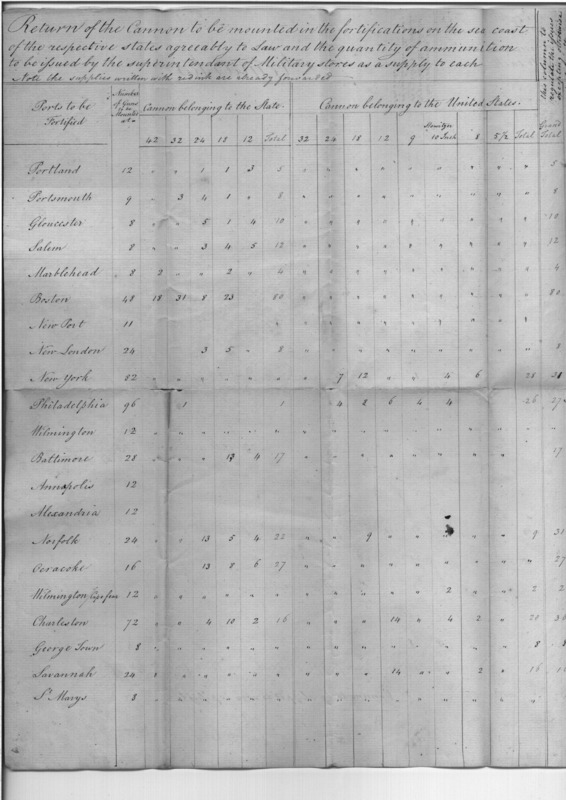 Return of the Cannon to be mounted in the fortifications on the sea coast
of the respective states agreeably to Law and the quantity of ammunition
to be issued by the superintendant of Military stores as a supply to each
Note the supplies written with red ink are already forwarded
this column to
Ports to be Fortified
Number of Guns to be Mounted
Cannon belonging to the State. Cannon belonging to the United States.
Howitzr
42 32 24 18 12 Total 32 24 18 12 9 10 Inch 8 5½ Total Grand Total
Portland 12 " " 1 1 3 5 " " " " " " " " " 5
Portsmouth 9 " 3 4 1 " 8 " " " " " " " " " 8
Gloucester 8 " " 5 1 4 10 " " " " " " " " " 10
Salem 8 " " 3 4 5 12 " " " " " " " " " 12
Marblehead 8 2 " " 2 " 4 " " " " " " " " " 4
Boston 48 18 31 8 23 80 " " " " " " " " " 80
New Port 11 " " " " " " " " "
New London 24 3 5 " 8 " " " " " " " " " 8
New York 82 " " " " " " " " 7 12 " " 4 6 28
Philadelphia 96 1 1 4 2 6 4 4 26 27
Wilmington 12 " " " " " " " " " " " " " " "
Baltimore 28 " " " 13 4 17 " " " " " " " " 17
Annapolis 12
Alexandria 12
Norfolk 24 " " 13 5 4 22 " " 9 " " " " " 9 31
Ocracoke 16 13 8 6 27 " " " " " " " " " 27
Wilmington Cape fear 12 " " " " " " " " " " " 2 " " 2 2
Charleston 72 " " 4 10 2 16 " " " " 14 " 4 2 " 20 36
George Town 8 " " " " " " " " " " " " " " 8 8
Savannah 24 " " " " " " " " " " 14 " " 2 " 16
St Marys 8 " " " " " " " " " " " " " "